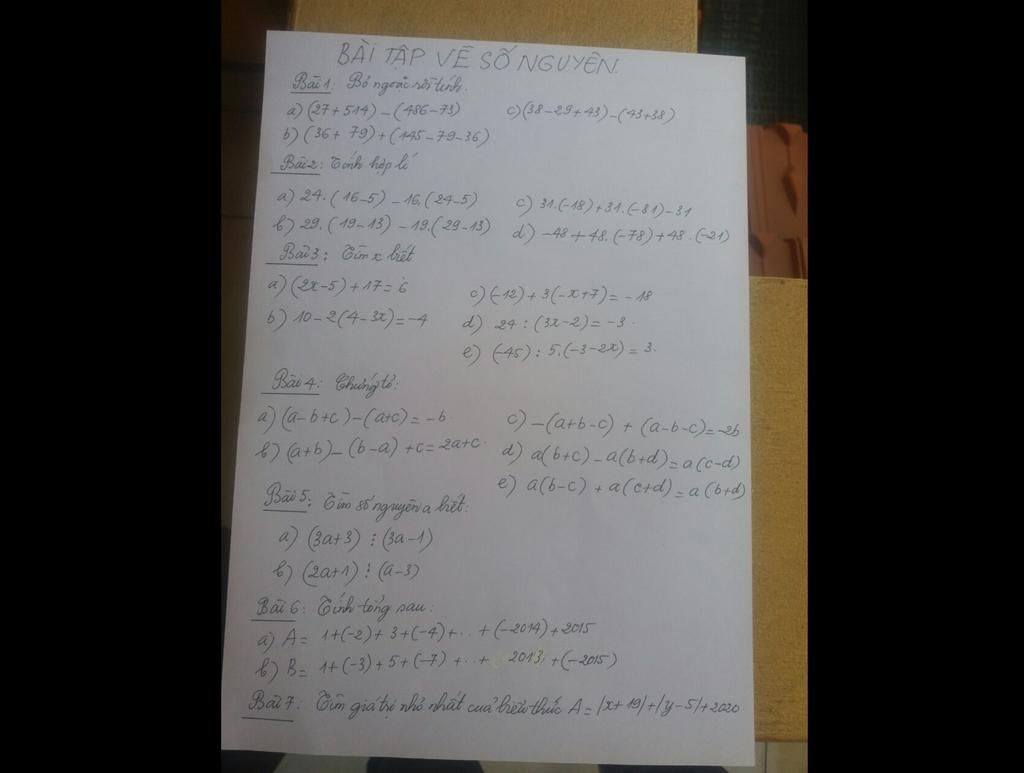 BÀI TẬP VỀ SỐ NGUYÊN.
Bài 1: Bỏ ngoặc rồi tính.
a) (27+514) - (486-73)
c) (38-29+43) - (43+38)
b) (36+79) + (145-79-36)
Bài 2: Tính hợp lí
a) 24.(16-5) - 16.(24-5)
c) 31.(-18)+31.(-81)-31
b) 29.(19-13) - 19.(29-13)
d) -48+48.(-78)+48.(-21)
Bài 3: Tìm x biết
a) (2x-5)+17=6
c) (-12)+3(-x+7)=-18
b) 10-2(4-3x)=-4
d) 24:(3x-2)=-3.
e) (-45):5.(-3-2x)=3.
Bài 4: Chứng tỏ:
a) (a-b+c)-(a+c)=-b
c) -(a+b-c) + (a-b-c)=-2b
b) (a+b)-(b-a)+c=2a+c.
d) a(b+c)-a(b+d)=a(c-d)
e) a(b-c)+a(c+d)=a(b+d)
Bài 5: Tìm số nguyên a biết:
a) (3a+3) ⋮ (3a-1)
b) (2a+1) ⋮ (a-3)
Bài 6: Tính tổng sau:
a) A= 1+(-2)+3+(-4)+...+(-2014)+2015
b) B= 1+(-3)+5+(-7)+...+2013+(-2015)
Bài 7: Tìm giá trị nhỏ nhất của biểu thức A=|x+19|+|y-5|+2020